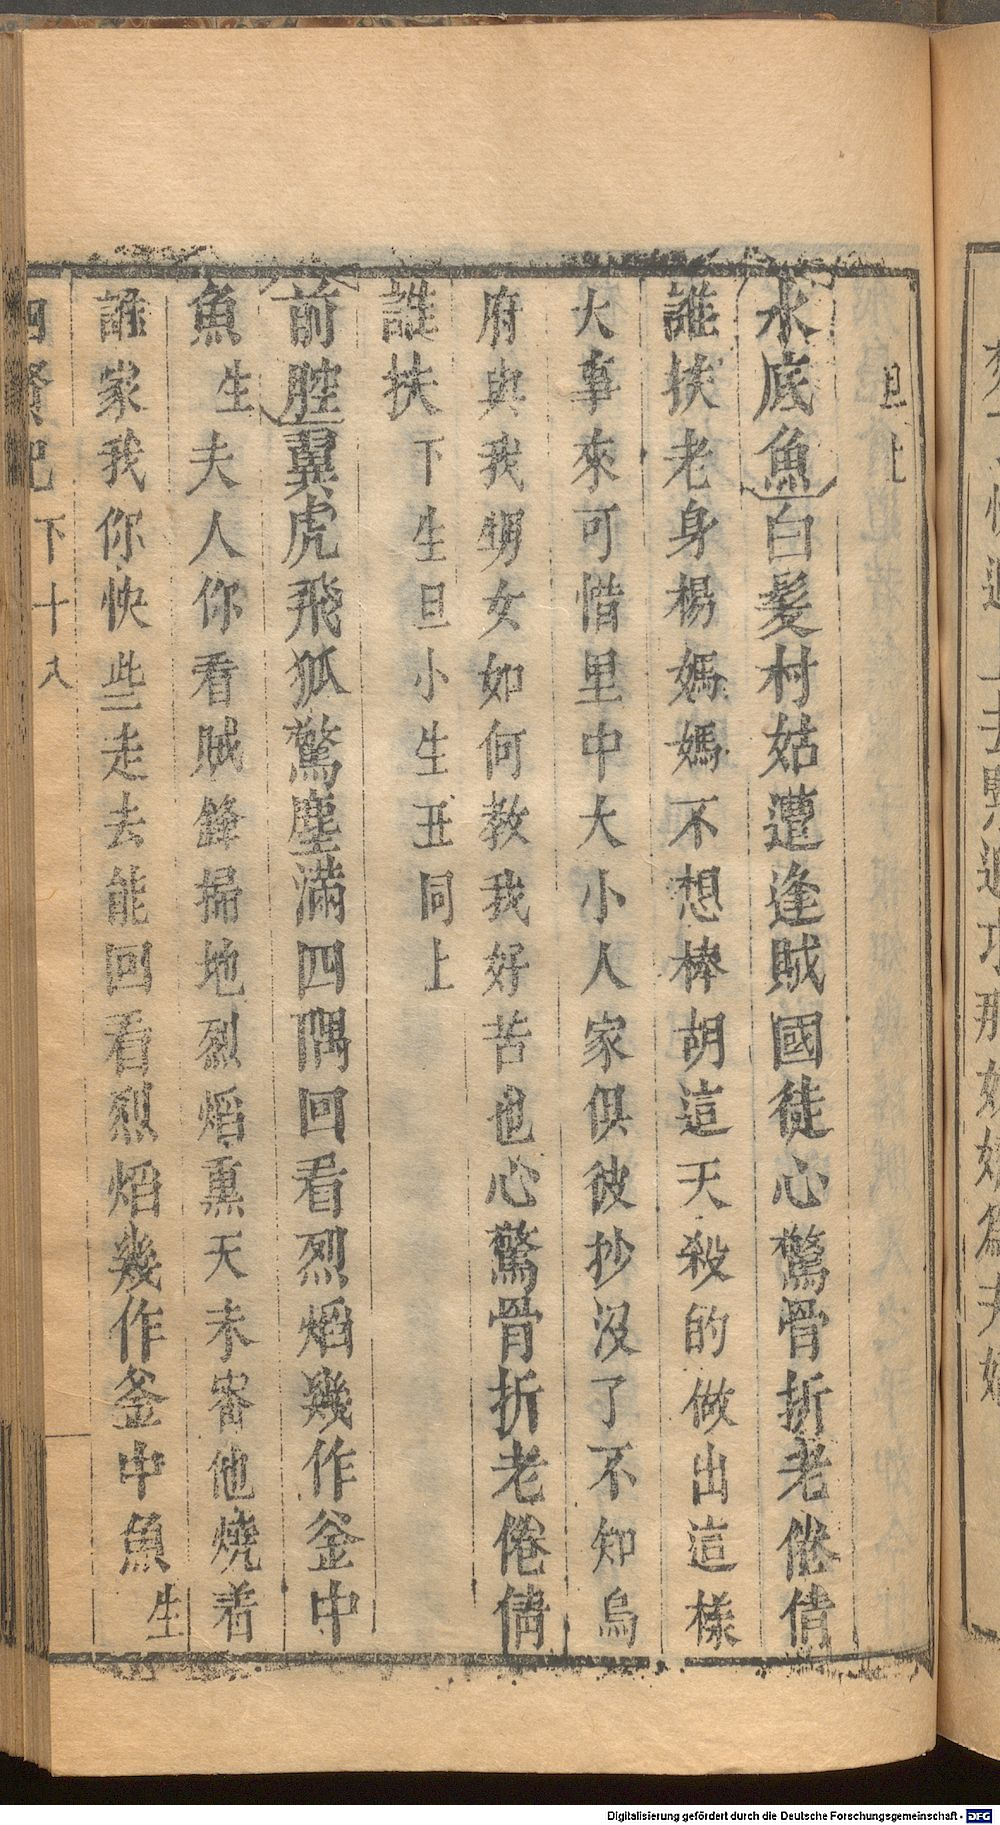 旦上
水底魚白髮村姑遭逢賊國徒心驚骨折老倦倩
誰扶老身楊媽媽不想棒胡這天殺的做出這樣
大事來可惜里中大小人家俱彼抄沒了不知烏
府與我甥女如何教我好苦也心驚骨折老倦倩
誰扶下生旦小生丑同上
前腔翼虎飛狐驚塵滿四隅回看烈熖幾作釜中
魚生夫人你看賊鋒掃地烈熖熏天未審他燒着
誰家我你快些走去能回看烈熖幾作釜中魚生
四賢記下十八
Digitalisierung gefördert durch die Deutsche Forschungsgemeinschaft - DFG